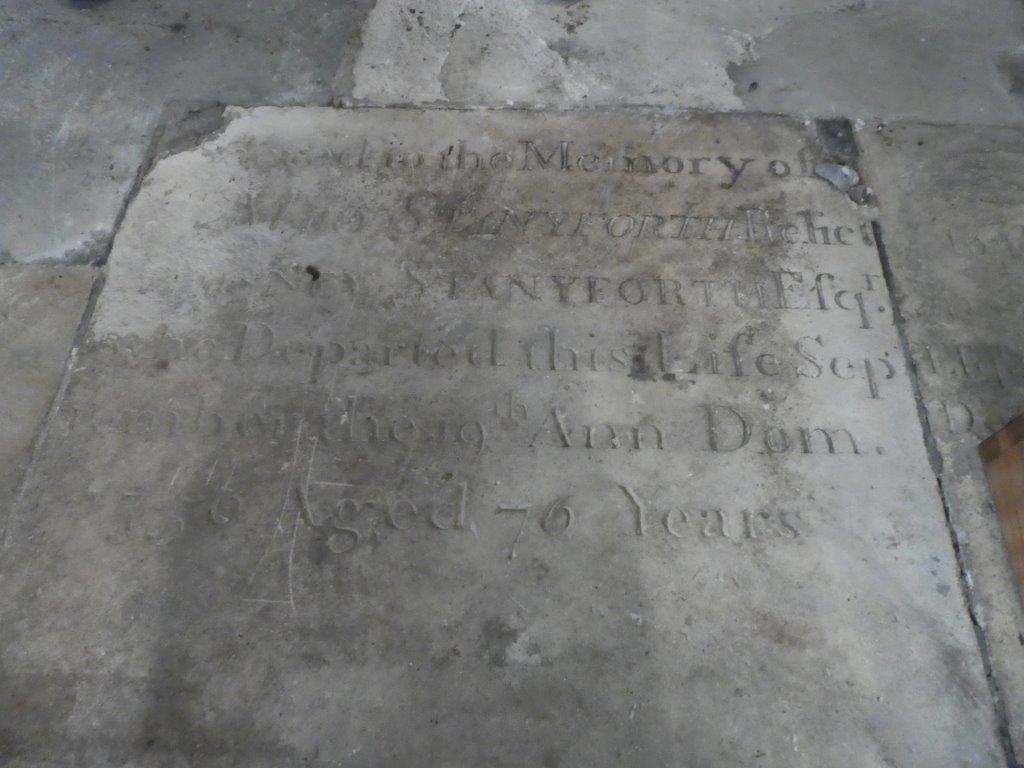 to the Memory of
STANYFORTH Relict
STANYFORTH Esqr.
who Departed this Life Sep
tember the 19th Ann Dom.
Aged 76 Years